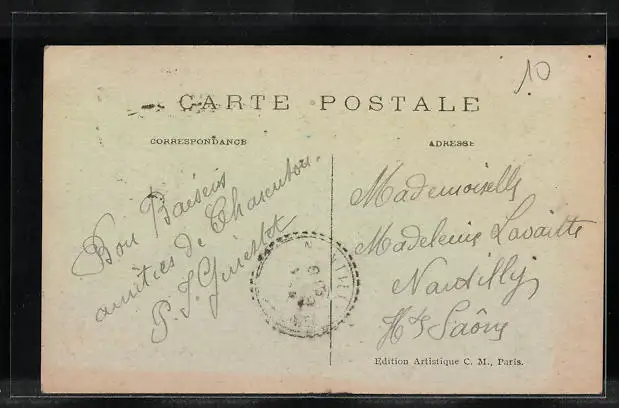 10
CARTE POSTALE
CORRESPONDANCE
ADRESSE
Bon Baisers
amitiés de Charenton.
P. J.
Mademoiselle
Madeleine
Nantilly
Hte Saône
Edition Artistique C. M., Paris.